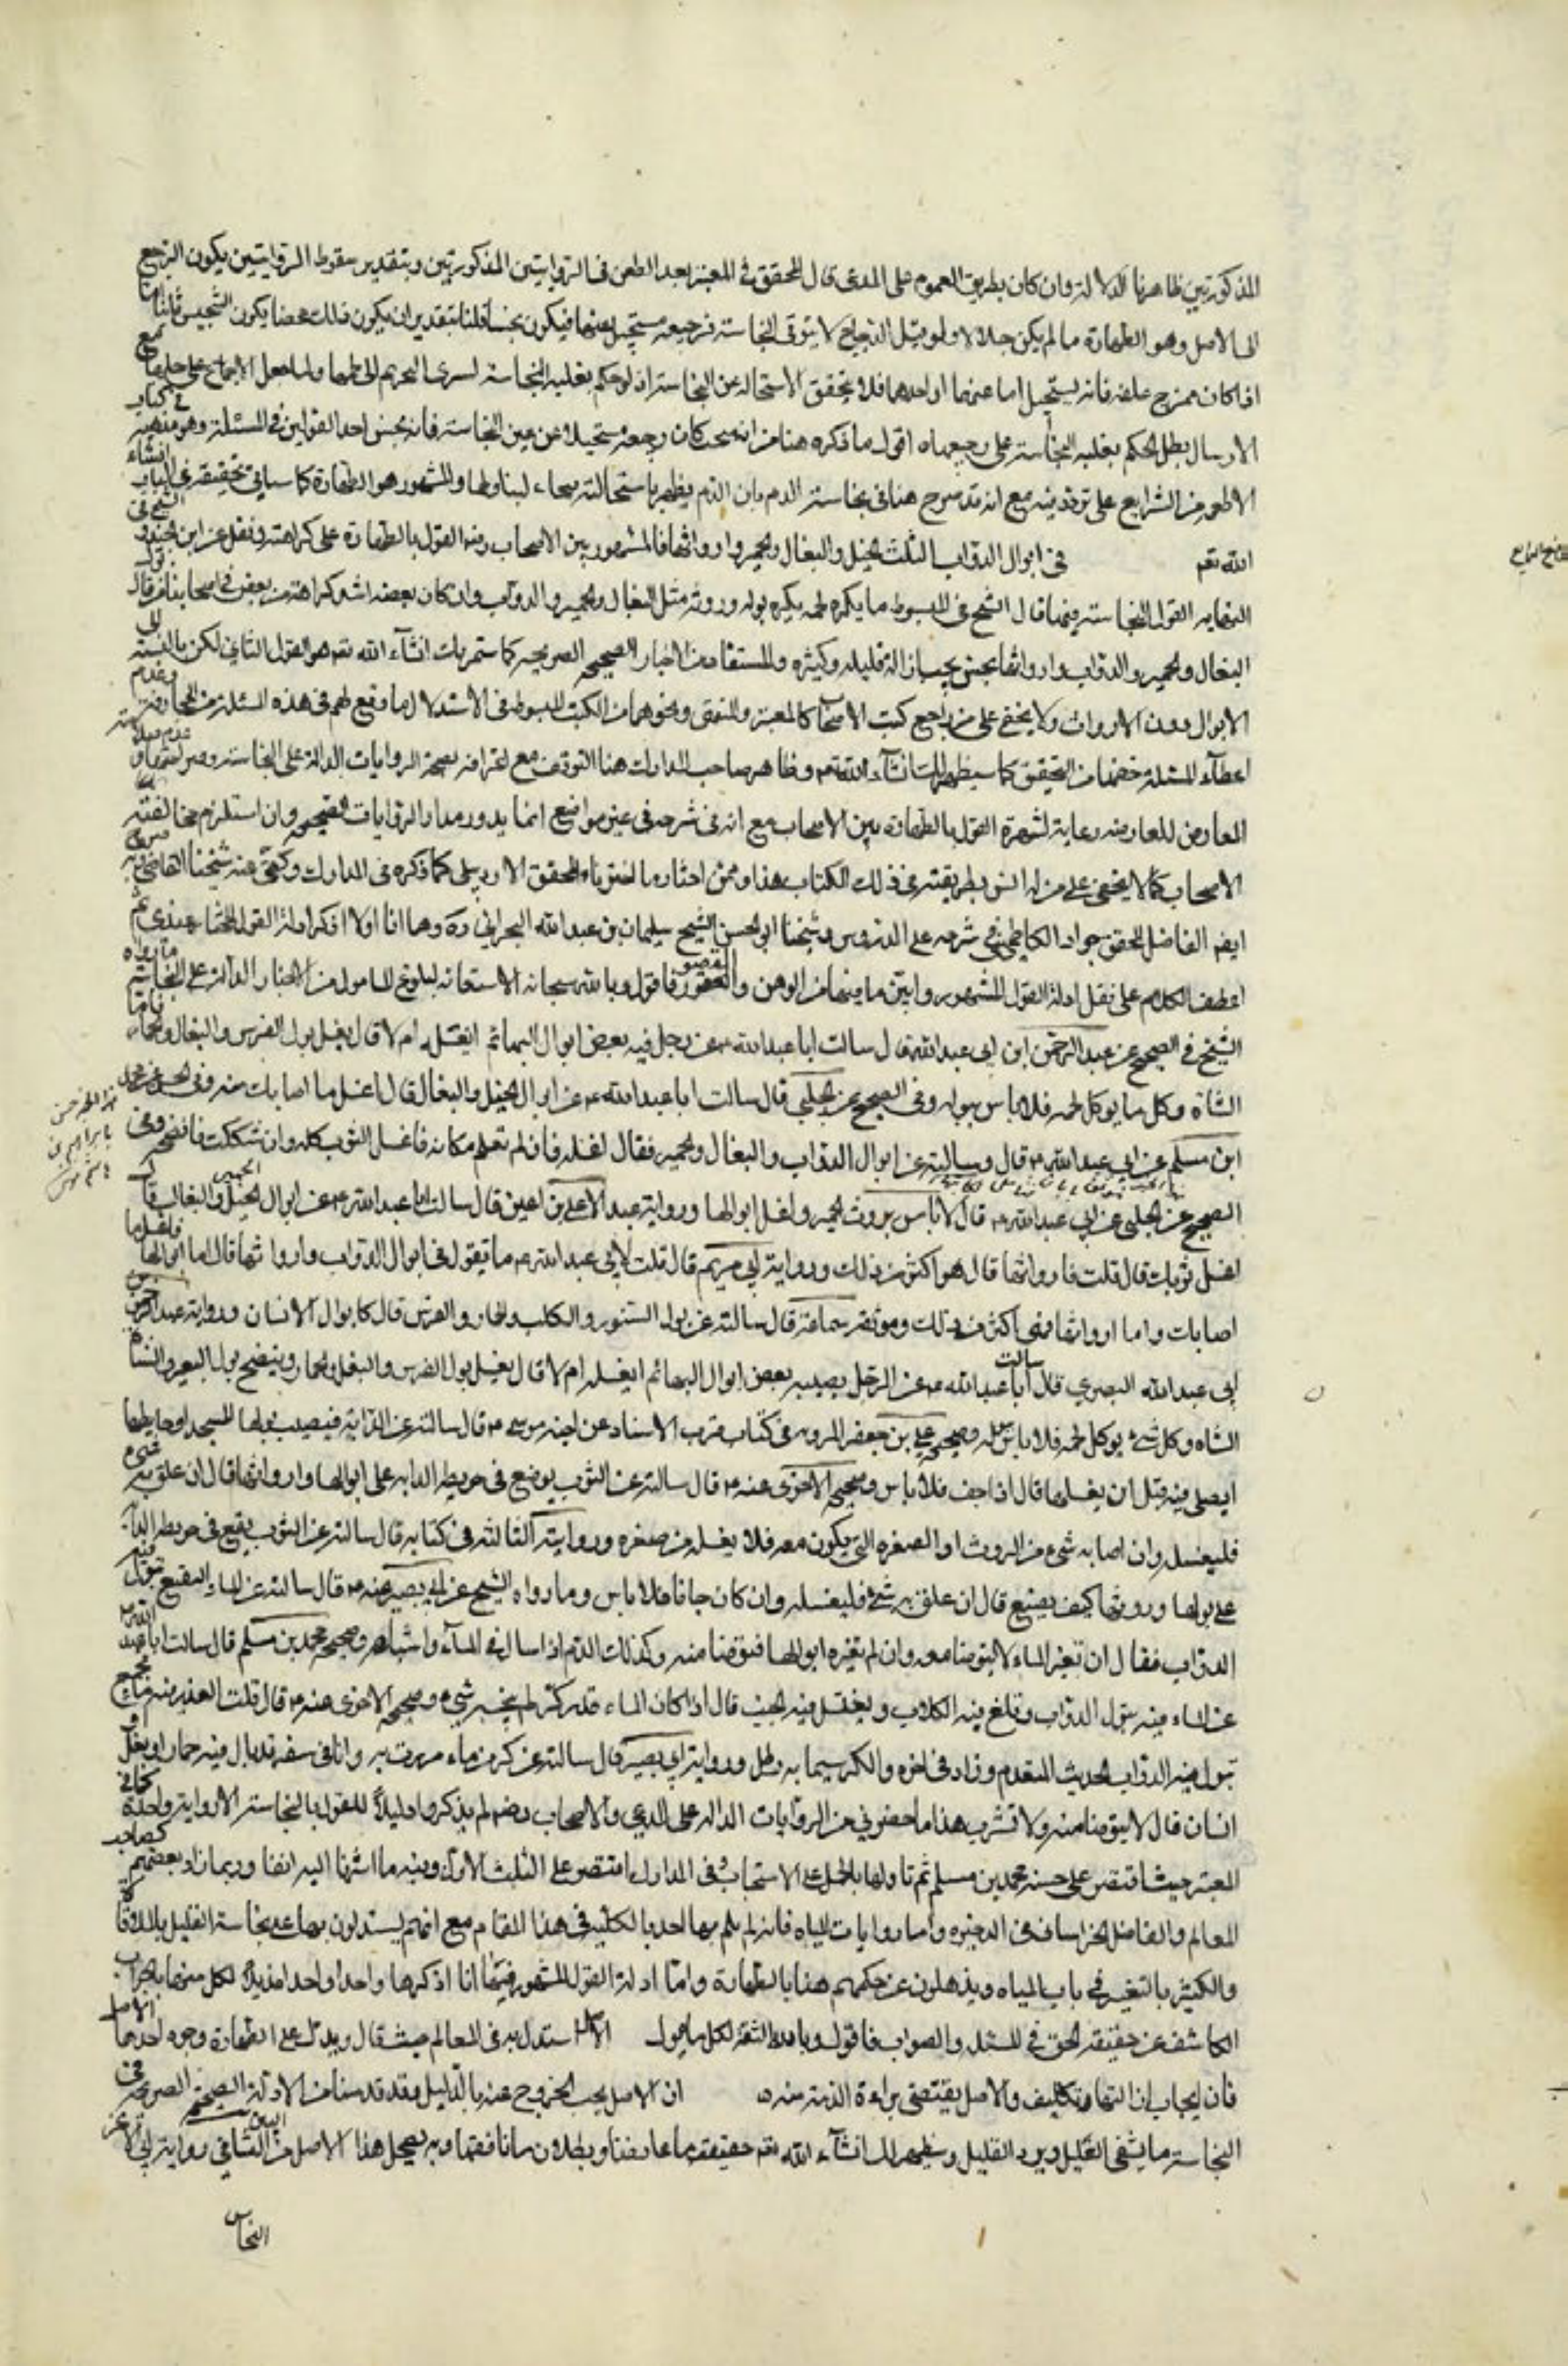 المذكورتين ظاهرتا الدلالة وان كان بطريق العموم على المدعى قال المحقق في المعتبر بعد الطعن في الروايتين المذكورتين وبتقدير سقوط الروايتين يكون الترجيح
الى الاصل وهو الطهارة ما لم يكن جلالا ولو قيل الدجاج لا يتوقى النجاسة فرجيعه مستحيل عنها فيكون نجسا قلنا بتقدير ان يكون ذلك محضا يكون التنجيس ثابتا اما
اذا كان يمزج علفه فانه يستحيل اما عنهما او احدهما فلا يتحقق الاستحالة عن النجاسة اذ لو حكم بغلبة النجاسة لسرى التحريم الى لحمها ولما حصل الاجماع على حلها مع
الارسال بطل الحكم بغلبة النجاسة على رجيعها اه اقول ما ذكره هنا من انه متى كان رجيعه مستحيلا عن عين النجاسة فانه نجس احد القولين في المسئلة وهو مذهبه في كتاب
الاطعمة من الشرايع على تردد فيه مع انه قد صرح هنا في نجاسة الدم بان الدم يطهر باستحالته قيحا ولبنا ولحما والمشهور هو الطهارة كما سياتي تحقيقه في الباب انشاء
الله تعم في ابوال الدواب الثلث الخيل والبغال والحمير وارواثها فالمشهور بين الاصحاب رضه القول بالطهارة على كراهة ونقل عن ابن الجنيد والشيخ في
النهاية القول بالنجاسة فيهما قال الشيخ في المبسوط ما يكره لحمه يكره بوله وروثه مثل البغال والحمير والدواب وان كان بعضه اشد كراهة من بعض وفي اصحابنا من قال بول
البغال والحمير والدواب وارواثها نجس يجب ازالة قليله وكثيره والمستفاد من الاخبار الصحيحة الصريحة كما ستمر بك انشاء الله تعم هو القول الثاني لكن بالنسبة الى
الابوال دون الارواث ولا يخفى على من راجع كتب الاصحاب كالمعتبر والمنتهى ونحوهما من الكتب المبسوطة في الاستدلال ما وقع لهم في هذه المسئلة من المجازفة وعدم
اعطاء المسئلة حقها من التحقيق كما سيظهر لك انشاء الله تعم وظاهر صاحب المدارك هنا التوقف مع اعترافه بصحة الروايات الدالة على النجاسة وصراحتها وعدم صلاحية
المعارض للمعارضة رعاية لشهرة القول بالطهارة بين الاصحاب مع انه في شرحه في غير موضع انما يدور مدار الروايات الصحيحة وان استلزم مخالفته
الاصحاب كما لا يخفى على من له انس بطريقته في ذلك الكتاب هذا وممن اختار ما اخترناه المحقق الاردبيلي كما ذكره في المدارك وكفى عنه شيخنا
ايضا الفاضل المحقق جواد الكاظمي في شرحه على الدروس وشيخنا ابو الحسن الشيخ سليمان بن عبدالله البحراني ره وها انا اولا اذكر ادلة القول المختار عندي ثم
اعطف الكلام على نقل ادلة القول المشهور وابين ما فيها من الوهن والقصور فاقول وبالله سبحانه الاستعانة لبلوغ المامول من الاخبار الدالة على النجاسة ما رواه
الشيخ في الصحيح عن عبد الرحمن ابن ابي عبدالله قال سالت ابا عبدالله ع عن رجل فيه بعض ابوال البهائم ايغسله ام لا قال يغسل بول الفرس والبغال والحمار فاما
الشاة وكل ما يوكل لحمه فلا باس ببوله وفي الصحيح عن الحلبي قال سالت ابا عبدالله ع عن ابوال الخيل والبغال قال اغسل ما اصابك منه وفي الحسن عن محمد
ابن مسلم عن ابي عبدالله ع قال وسالته عن ابوال الدواب والبغال والحمير فقال اغسله فان لم تعلم مكانه فاغسل الثوب كله وان شككت فانضحه وفي
الصحيح عن الحلبي عن ابي عبدالله ع قال لا باس بروث الحمير واغسل ابوالها ورواية عبد الاعلى بن اعين قال سالت ابا عبدالله ع عن ابوال الحمير والبغال قال
اغسل ثوبك قال قلت فارواثها قال هو اكثر من ذلك ورواية ابي مريم قال قلت لابي عبدالله ع ما تقول في ابوال الدواب وارواثها قال اما ابوالها فاغسل ما
اصابك واما ارواثها فهي اكثر من ذلك وموثقة سماعة قال سالته عن بول السنور والكلب والحمار والفرس قال كابوال الانسان ورواية عبد الرحمن بن
ابي عبدالله البصري قال سالت ابا عبدالله ع عن الرجل يصيبه بعض ابوال البهائم ايغسله ام لا قال يغسل بول الفرس والبغل والحمار وينضح بول البعير والشاة
الشاه وكل شيء يوكل لحمه فلا باس به وصحيحة علي بن جعفر المروية في كتاب قرب الاسناد عن اخيه موسى ع قال سالته عن الدابة فيصيب بولها المسجد او حايطها
ايصلى فيه قبل ان يغسلها قال اذا جف فلا باس وصحيحته الاخرى عنه ع قال سالته عن الثوب يوضع في مربط الدابة على ابوالها وارواثها قال ان علق به شيء
فليغسل وان اصابه شيء من الروث او الصفرة التي يكون معه فلا يغسله من صفره وروايته الثالثة في كتابه قال سالته عن الثوب يقع في مربط الدابة
على بولها وروثها كيف يصنع قال ان علق به شيء فليغسله وان كان جافا فلا باس وما رواه الشيخ عن ابي بصير عنه ع قال سالته عن الماء النقيع تبول فيه
الدواب فقال ان تغير الماء لا يتوضا معه وان لم تغيره ابوالها فتوضا منه وكذلك الدم اذا سال في الماء واشباهه وصحيحة محمد بن مسلم قال سالت ابا عبد الله ع
عن الماء فيه تبول الدواب وتلغ فيه الكلاب ويغتسل فيه الجنب قال اذا كان الماء قدر كر لم ينجسه شيء وصحيحة الاخرى عنه ع قال قلت الغدير فيه ماء مجتمع
تبول فيه الدواب الحديث المتقدم وزاد في اخره والكر سيما به رطل ورواية ابي بصير قال سالته عن كر من ماء مررت به وانا في سفر قد بال فيه حمار او بغل او
انسان قال لا يتوضا منه ولا تشرب هذا ما حضرني من الروايات الدالة على المدعى والاصحاب رضهم لم يذكروا دليلا للقول بالنجاسة الا رواية واحدة كما في
المعتبر حيث اقتصر على حسنة محمد بن مسلم ثم تاولها بالحمل على الاستحباب وفي المدارك اقتصر على الثلث الاول وفيه ما اشرنا اليه انفا وربما زاد بعضهم كصاحب
المعالم والفاضل الخراساني في الذخيرة واما روايات المياه فانه لم يلم بها احد بالكلية في هذا المقام مع انهم يستدلون بها على نجاسة القليل بالملاقاة
والكثير بالتغير في باب المياه ويذهلون عن حكمهم هنا بالطهارة واما ادلة القول المشهور فيها انا اذكرها واحدا واحدا مذيلا لكل منها بالجواب
الكاشف عن حقيقة الحق في المسئلة والصواب فاقول وبالله الثقة لكل مامول الاول استدل به في المعالم حيث قال ويدل على الطهارة وجوه احدها الاصل
فان ايجاب ازالتها تكليف والاصل يقتضي براءة الذمة منه ان الاصل يجب الخروج عنه بالدليل وقد قدمنا من الادلة الصحيحة الصريحة في
النجاسة ما يشفي الغليل ويبرد الغليل وسيظهر لك انشاء الله تعم حقيقة ما عارضنا وبطلان ما نافقها وبه يضمحل هذا الاصل من البين الثاني رواية ابي الاغر
النحاس